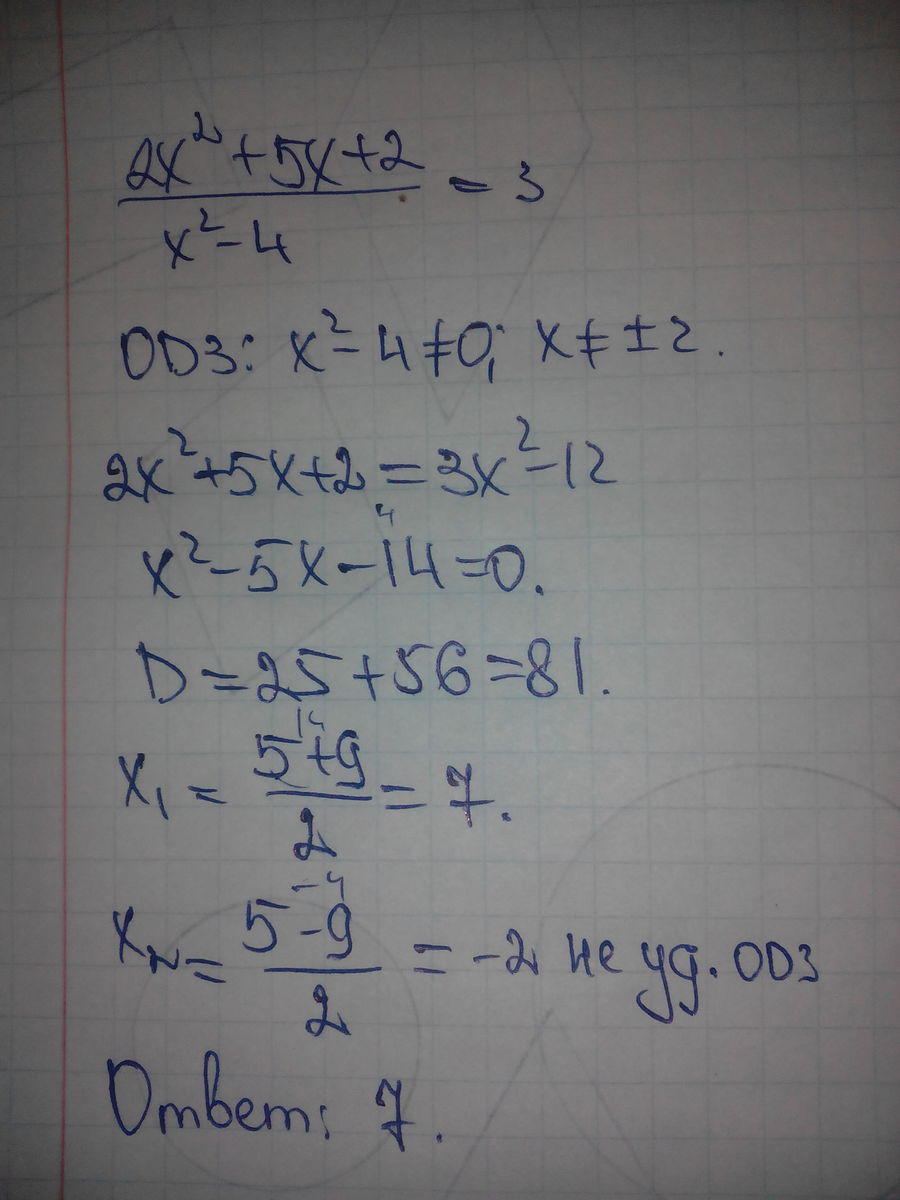 2x² + 5x + 2
x² - 4 = 3
ОДЗ: x² - 4 ≠ 0; x ≠ ± 2.
2x² + 5x + 2 = 3x² - 12
4
x² - 5x - 14 = 0.
D = 25 + 56 = 81.
14
x₁ = 5 + 9 / 2 = 7.
-4
x₂ = 5 - 9 / 2 = -2 не уд. ОДЗ
Ответ: 7.